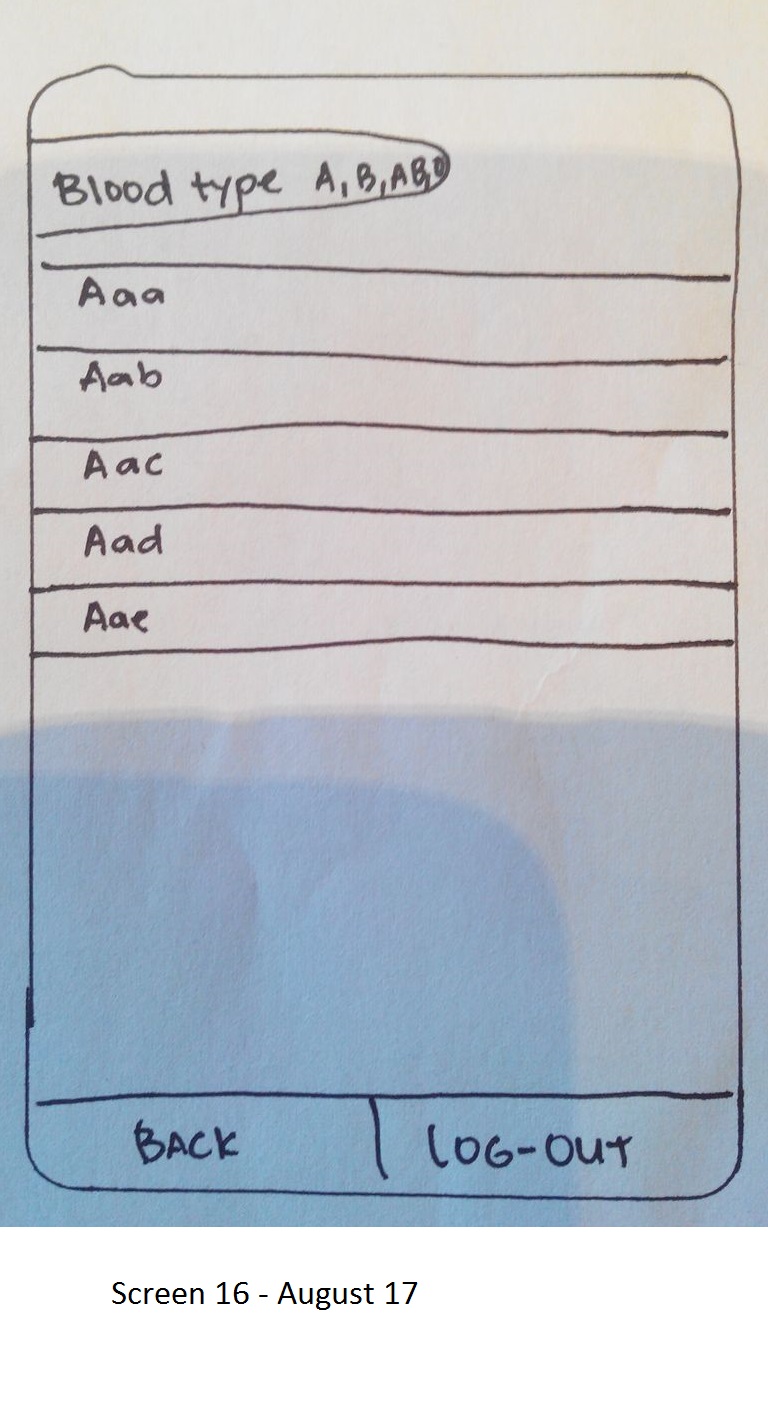 Blood type A, B, AB, O
Aaa
Aab
Aac
Aad
Aae
BACK LOG-OUT
Screen 16 - August 17